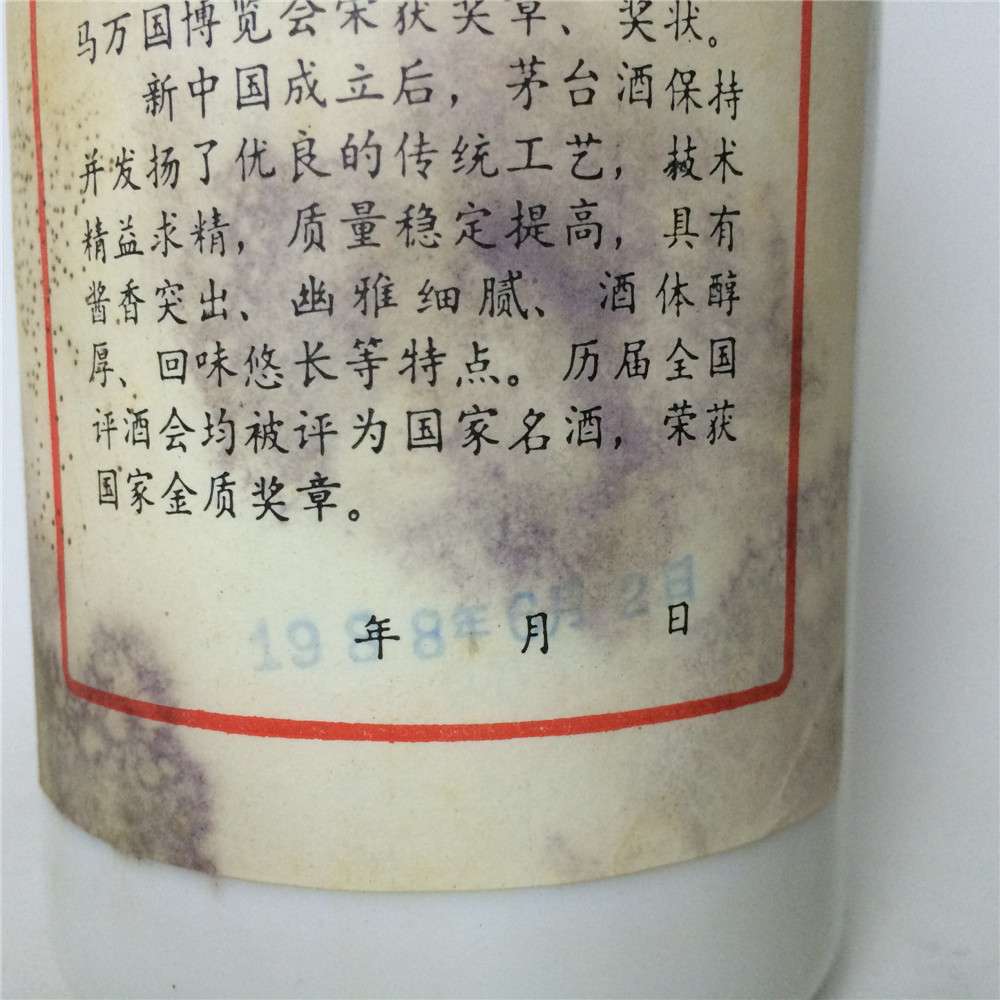 马万国博览会荣获奖章、奖状。
新中国成立后，茅台酒保持
并发扬了优良的传统工艺，技术
精益求精，质量稳定提高，具有
酱香突出、幽雅细腻、酒体醇
厚、回味悠长等特点。历届全国
评酒会均被评为国家名酒，荣获
国家金质奖章。
年 月 日
1988年6月2日